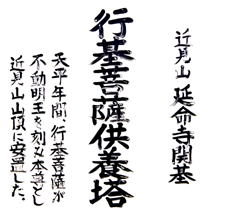 近見山 延命寺開基
行基菩薩供養塔
天平年間、行基菩薩が
不動明王を刻み本尊とし
近見山山頂に安置した。